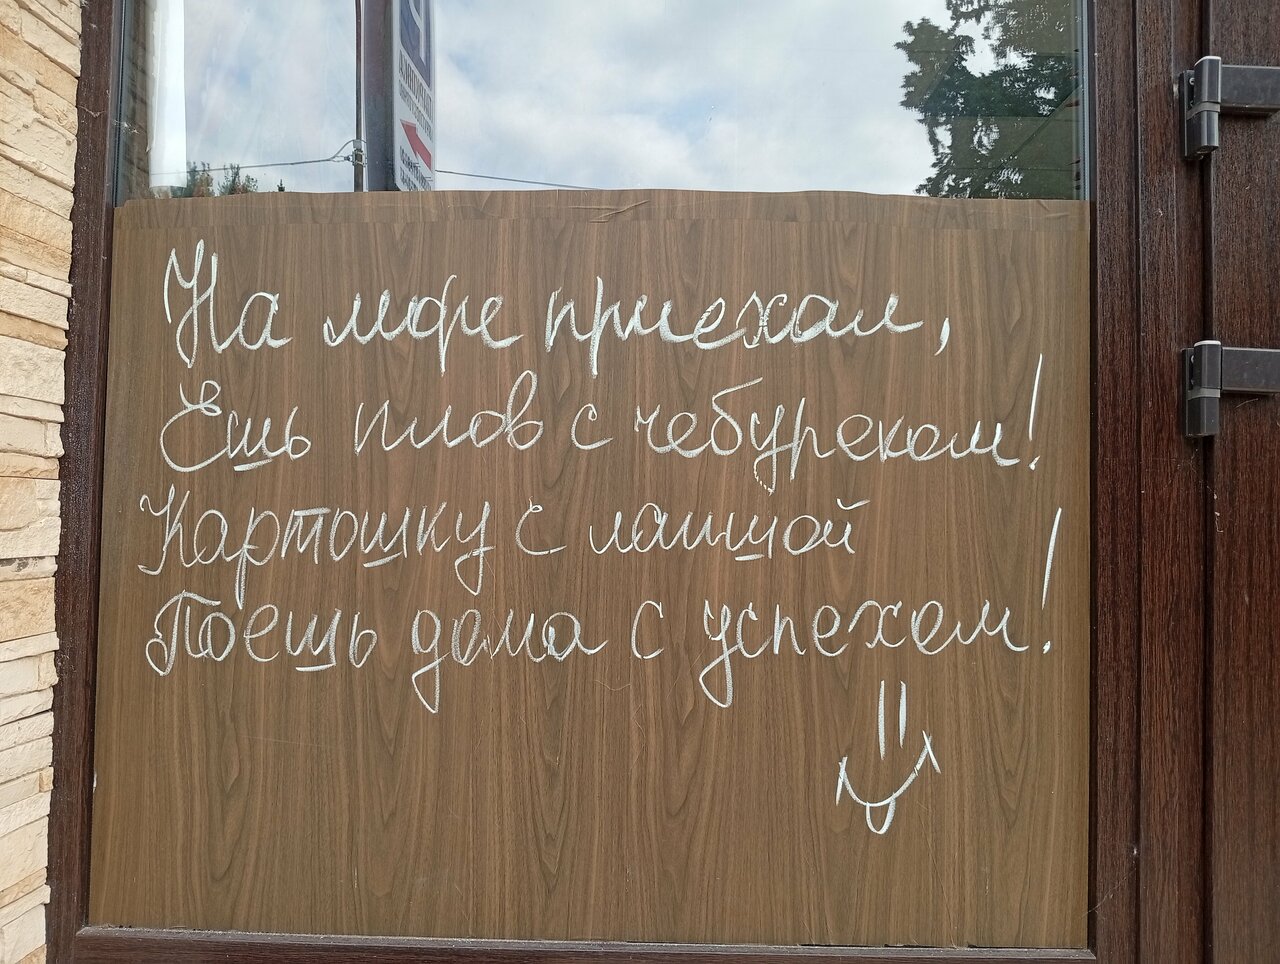 На море приехал,
Ешь плов с чебуреком!
Картошку с лапшой
Поешь дома с успехом!